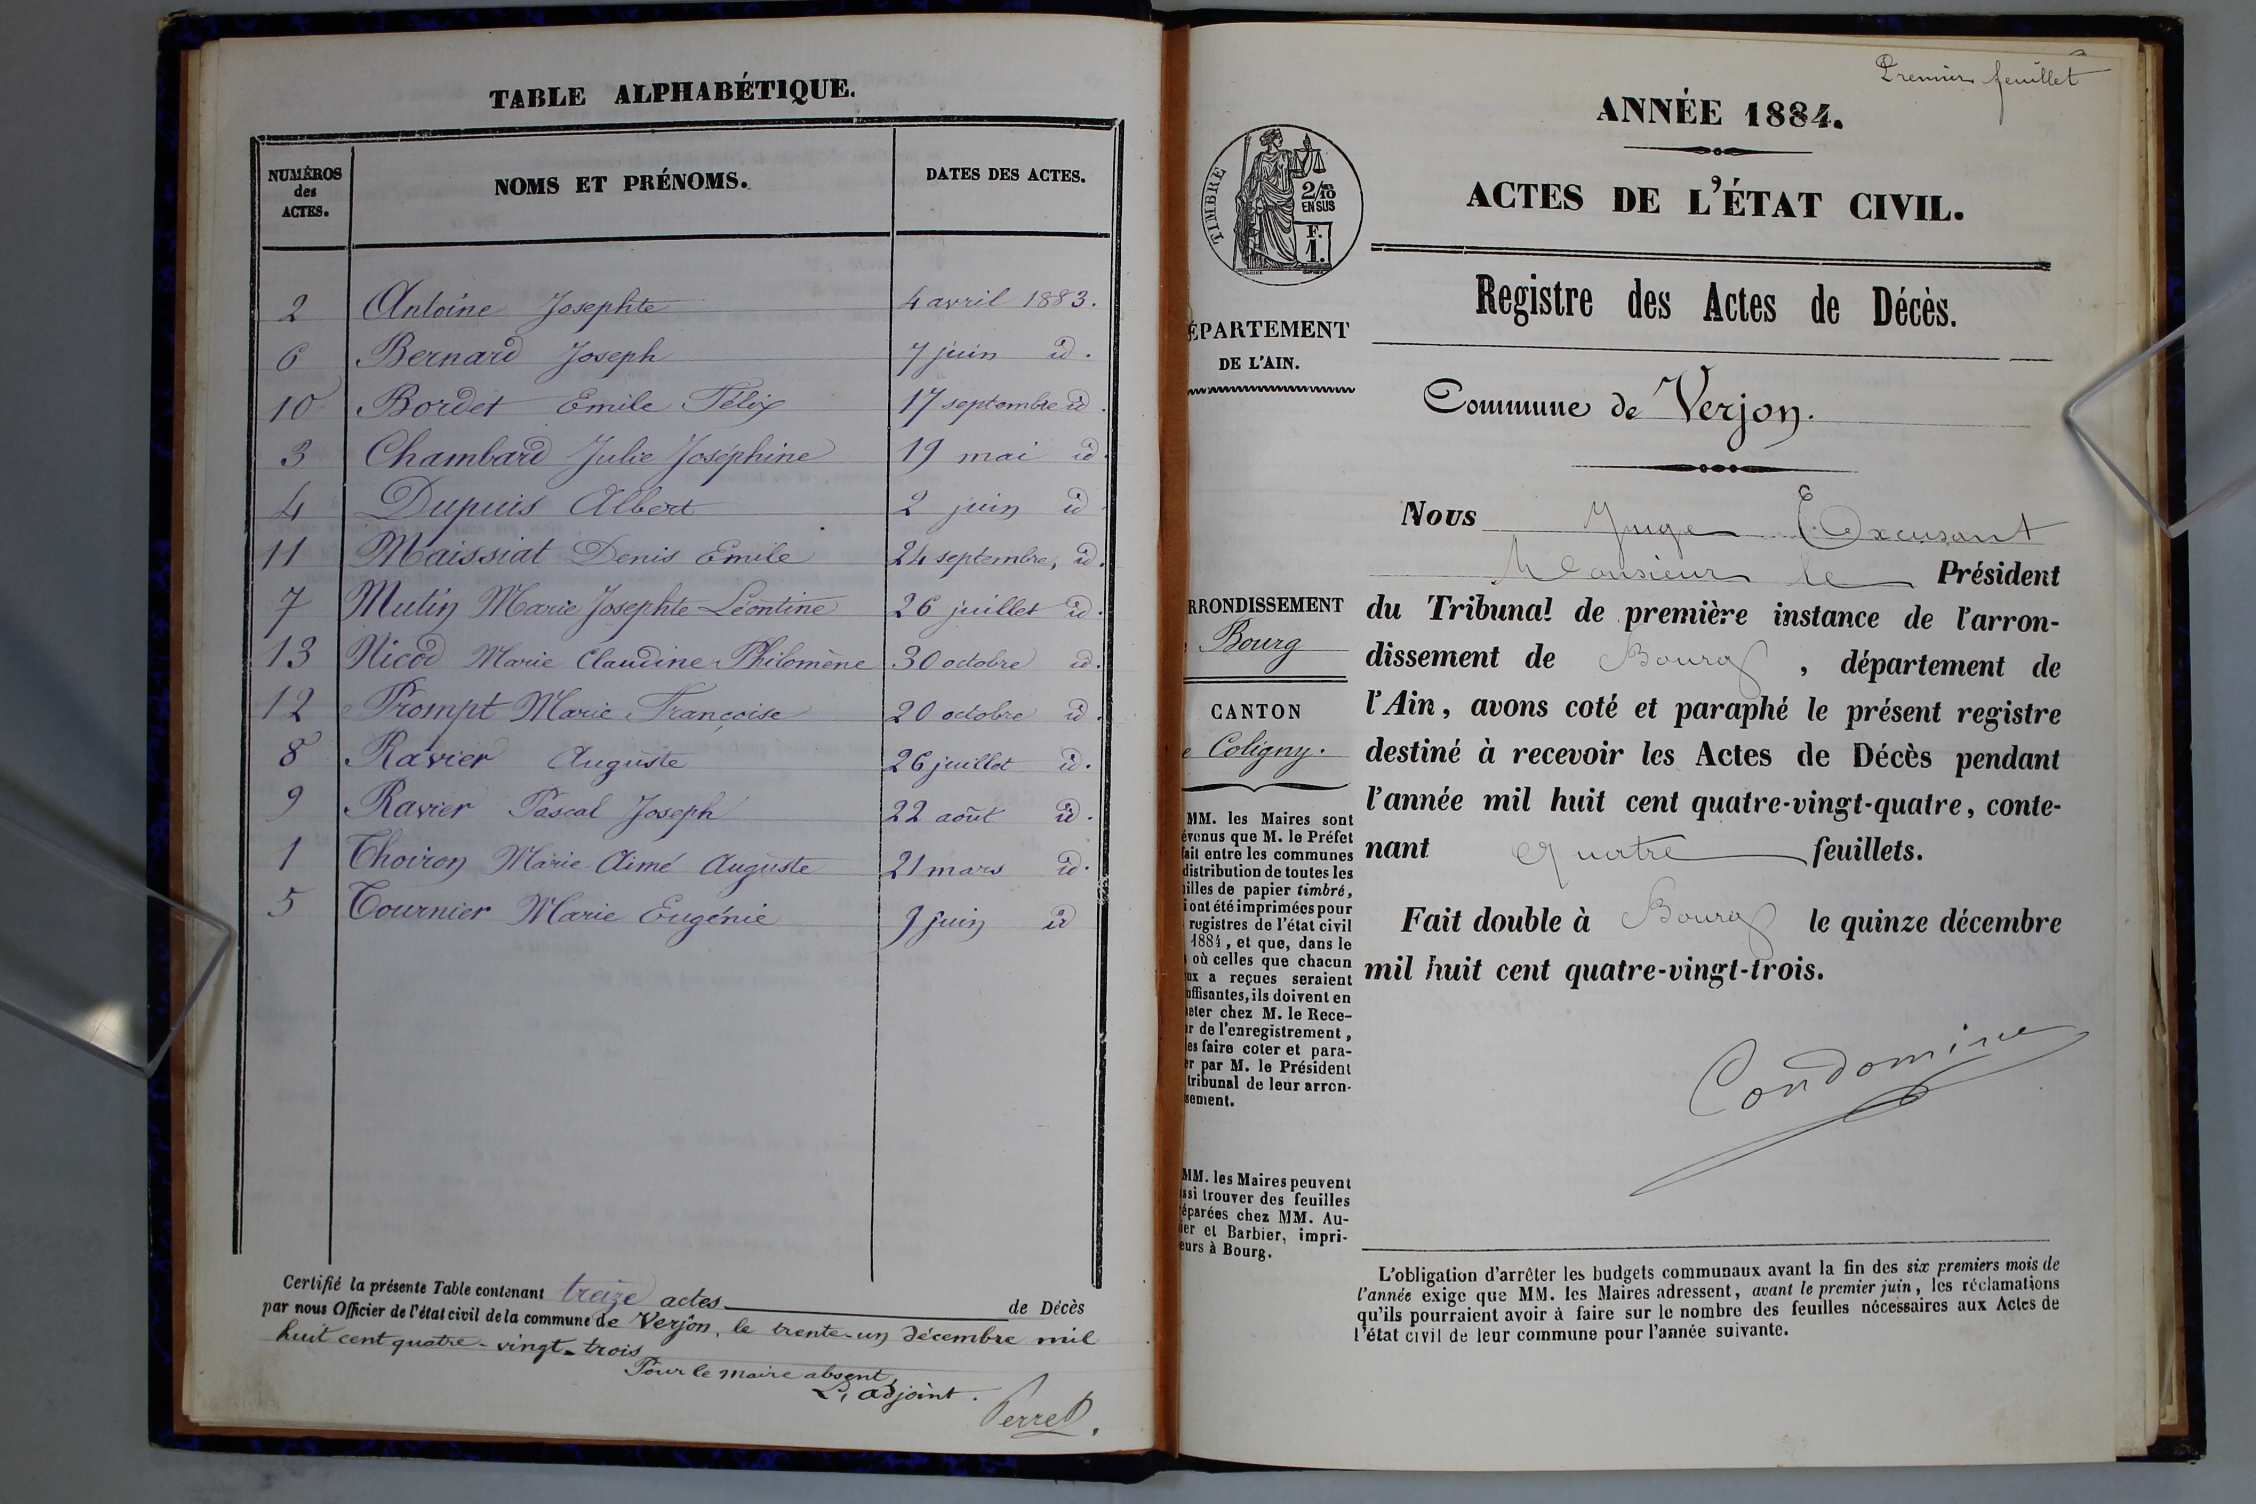 TABLE ALPHABÉTIQUE.
NUMÉROS des ACTES.
NOMS ET PRÉNOMS.
DATES DES ACTES.
2 Antoine Josephte 4 avril 1883.
6 Bernard Joseph 7 juin id.
10 Bordet Emile Félix 17 septembre id.
3 Chambard Julie Joséphine 19 mai id.
4 Dupuis Albert 2 juin id
11 Maissiat Denis Emile 24 septembre, id.
7 Mutin Marie Josephte Léontine 26 juillet id.
13 Nicod Marie Claudine Philomène 30 octobre id.
12 Prompt Marie Françoise 20 octobre id.
8 Ravier Auguste 26 juillet id.
9 Ravier Pascal Joseph 22 août id.
1 Thoiron Marie Aimé Auguste 21 mars id.
5 Tournier Marie Eugénie juin id
Certifié la présente Table contenant treize actes de Décès
par nous Officier de l'état civil de la commune de Verjon, le trente-un décembre mil
huit cent quatre-vingt-trois
Pour le maire absent,
L'adjoint.
Perret.
Premier feuillet
ANNÉE 1884.
ACTES DE L'ÉTAT CIVIL.
TIMBRE
2/10
EN SUS
F.
1.
Registre des Actes de Décès.
ÉPARTEMENT
DE L'AIN.
Commune de Verjon.
Nous Juge Excusant
Monsieur le Président
du Tribunal de première instance de l'arron-
dissement de Bourg, département de
l'Ain, avons coté et paraphé le présent registre
destiné à recevoir les Actes de Décès pendant
l'année mil huit cent quatre-vingt-quatre, conte-
nant quatre feuillets.
Fait double à Bourg le quinze décembre
mil huit cent quatre-vingt-trois.
Condomine
RRONDISSEMENT
Bourg
CANTON
e Coligny.
MM. les Maires sont
évenus que M. le Préfet
fait entre les communes
distribution de toutes les
illes de papier timbré,
i ont été imprimées pour
registres de l'état civil
1884, et que, dans le
où celles que chacun
ux a reçues seraient
uffisantes, ils doivent en
heter chez M. le Rece-
ur de l'enregistrement,
es faire coter et para-
er par M. le Président
tribunal de leur arron-
sement.
MM. les Maires peuvent
ussi trouver des feuilles
réparées chez MM. Au-
ier et Barbier, impri-
eurs à Bourg.
L'obligation d'arrêter les budgets communaux avant la fin des six premiers mois de
l'année exige que MM. les Maires adressent, avant le premier juin, les réclamations
qu'ils pourraient avoir à faire sur le nombre des feuilles nécessaires aux Actes de
l'état civil de leur commune pour l'année suivante.